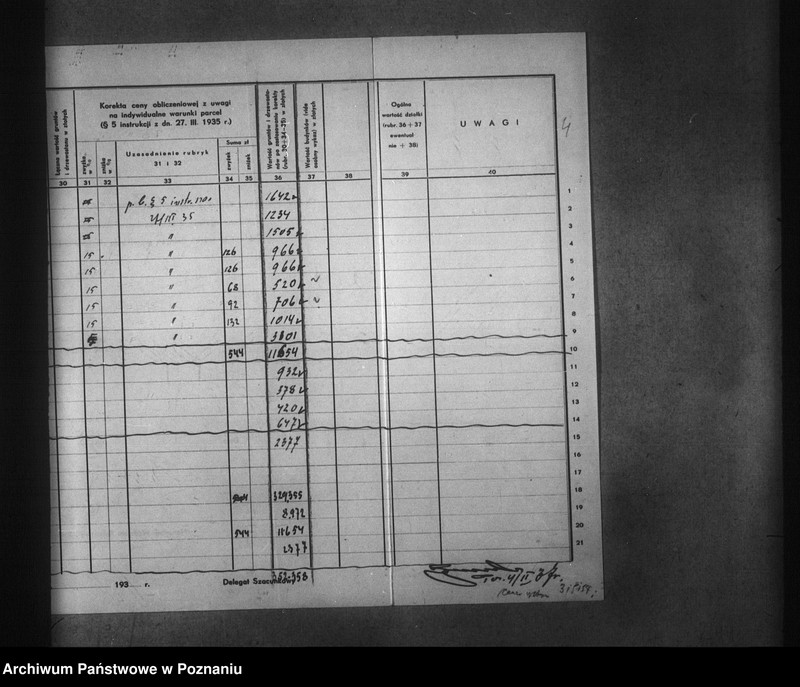 Łączna wartość gruntów i drzewostanu w złotych
Korekta ceny obliczeniowej z uwagi
na indywidualne warunki parcel
(§ 5 instrukcji z dn. 27. III. 1935 r.)
zwyżka w %
zniżka w %
Uzasadnienie rubryk
31 i 32
Suma zł
zwyżek
zniżek
(rubr. 30+34–35) w złotych
Wartość budynków (vide osobny wykaz) w złotych
Ogólna
wartość działki
(rubr. 36 + 37
ewentual
nie + 38)
U W A G I
4
30 31 32 33 34 35 36 37 38 39 40
p. b. § 5 1642 1
27/III 35 1234 2
" 1505 3
15 " 126 966 4
15 " 126 966 5
15 " 68 520 6
15 " 92 706 7
15 " 132 1014 8
" 3801 9
544 11654 10
932 11
378 12
420 13
647 14
2377 15
16
17
329355 18
8.972 19
544 11654 20
2377 21
352.358
193 r. Delegat Szacunkowy
Archiwum Państwowe w Poznaniu